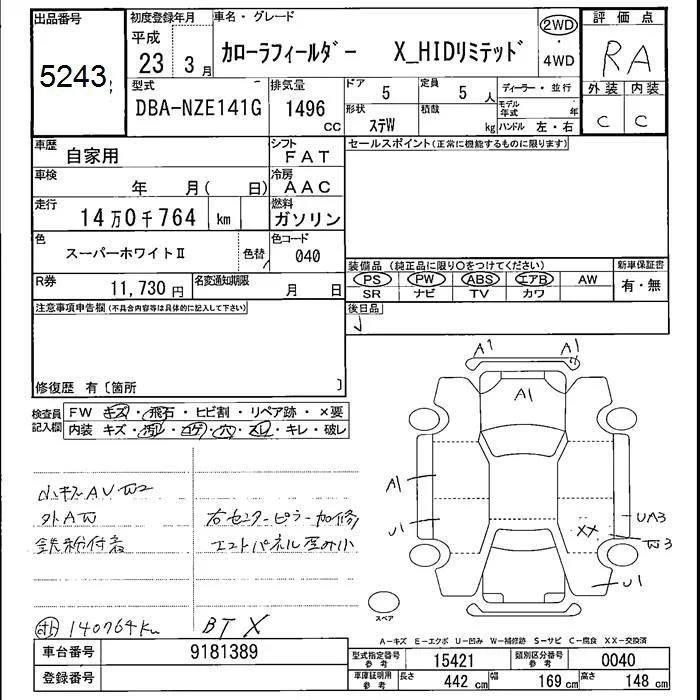 出品番号 初度登録年月 車名・グレード 2WD 評価点
平成 カローラフィールダー X_HIDリミテッド 4WD RA
5243 23年 3月 外装 内装
型式 排気量 ドア 5 定員 5人 ディーラー・並行 C C
DBA-NZE141G 1496cc 形状 ステW 積載 kg モデル年式 年
ハンドル 左・右
車歴 自家用 シフト FAT セールスポイント(正常に機能するものに限ります)
車検 年 月( 日) 冷房 AAC
走行 14万0千764 km 燃料 ガソリン
色 スーパーホワイトⅡ 色替 色コード 040
装備品(純正品に限り○をつけてください) 新車保証書
R券 11,730円 名変通知期限 月 日 PS PW ABS エアB AW 有・無
SR ナビ TV カワ
注意事項申告欄(不具合内容等は具体的に記入して下さい) 後日品
修復歴 有〔箇所 〕
検査員記入欄 FW キズ・飛石・ヒビ割・リペア跡・×要
内装 キズ・汚レ・コゲ・穴・スレ・キレ・破レ
A1 A1
A1
A1
U1 XX UA3
W3
U1
小キズAUW2
外AW 右センターピラー加修
鉄粉付着 エンドパネル歪み小
140764km BTX
スペア
A-キズ E-エクボ U-凹み W-補修跡 S-サビ C-腐食 XX-交換済
車台番号 9181389 型式指定番号 参考 15421 類別区分番号 参考 0040
登録番号 車庫証明用 参考 長さ 442cm 幅 169cm 高さ 148cm